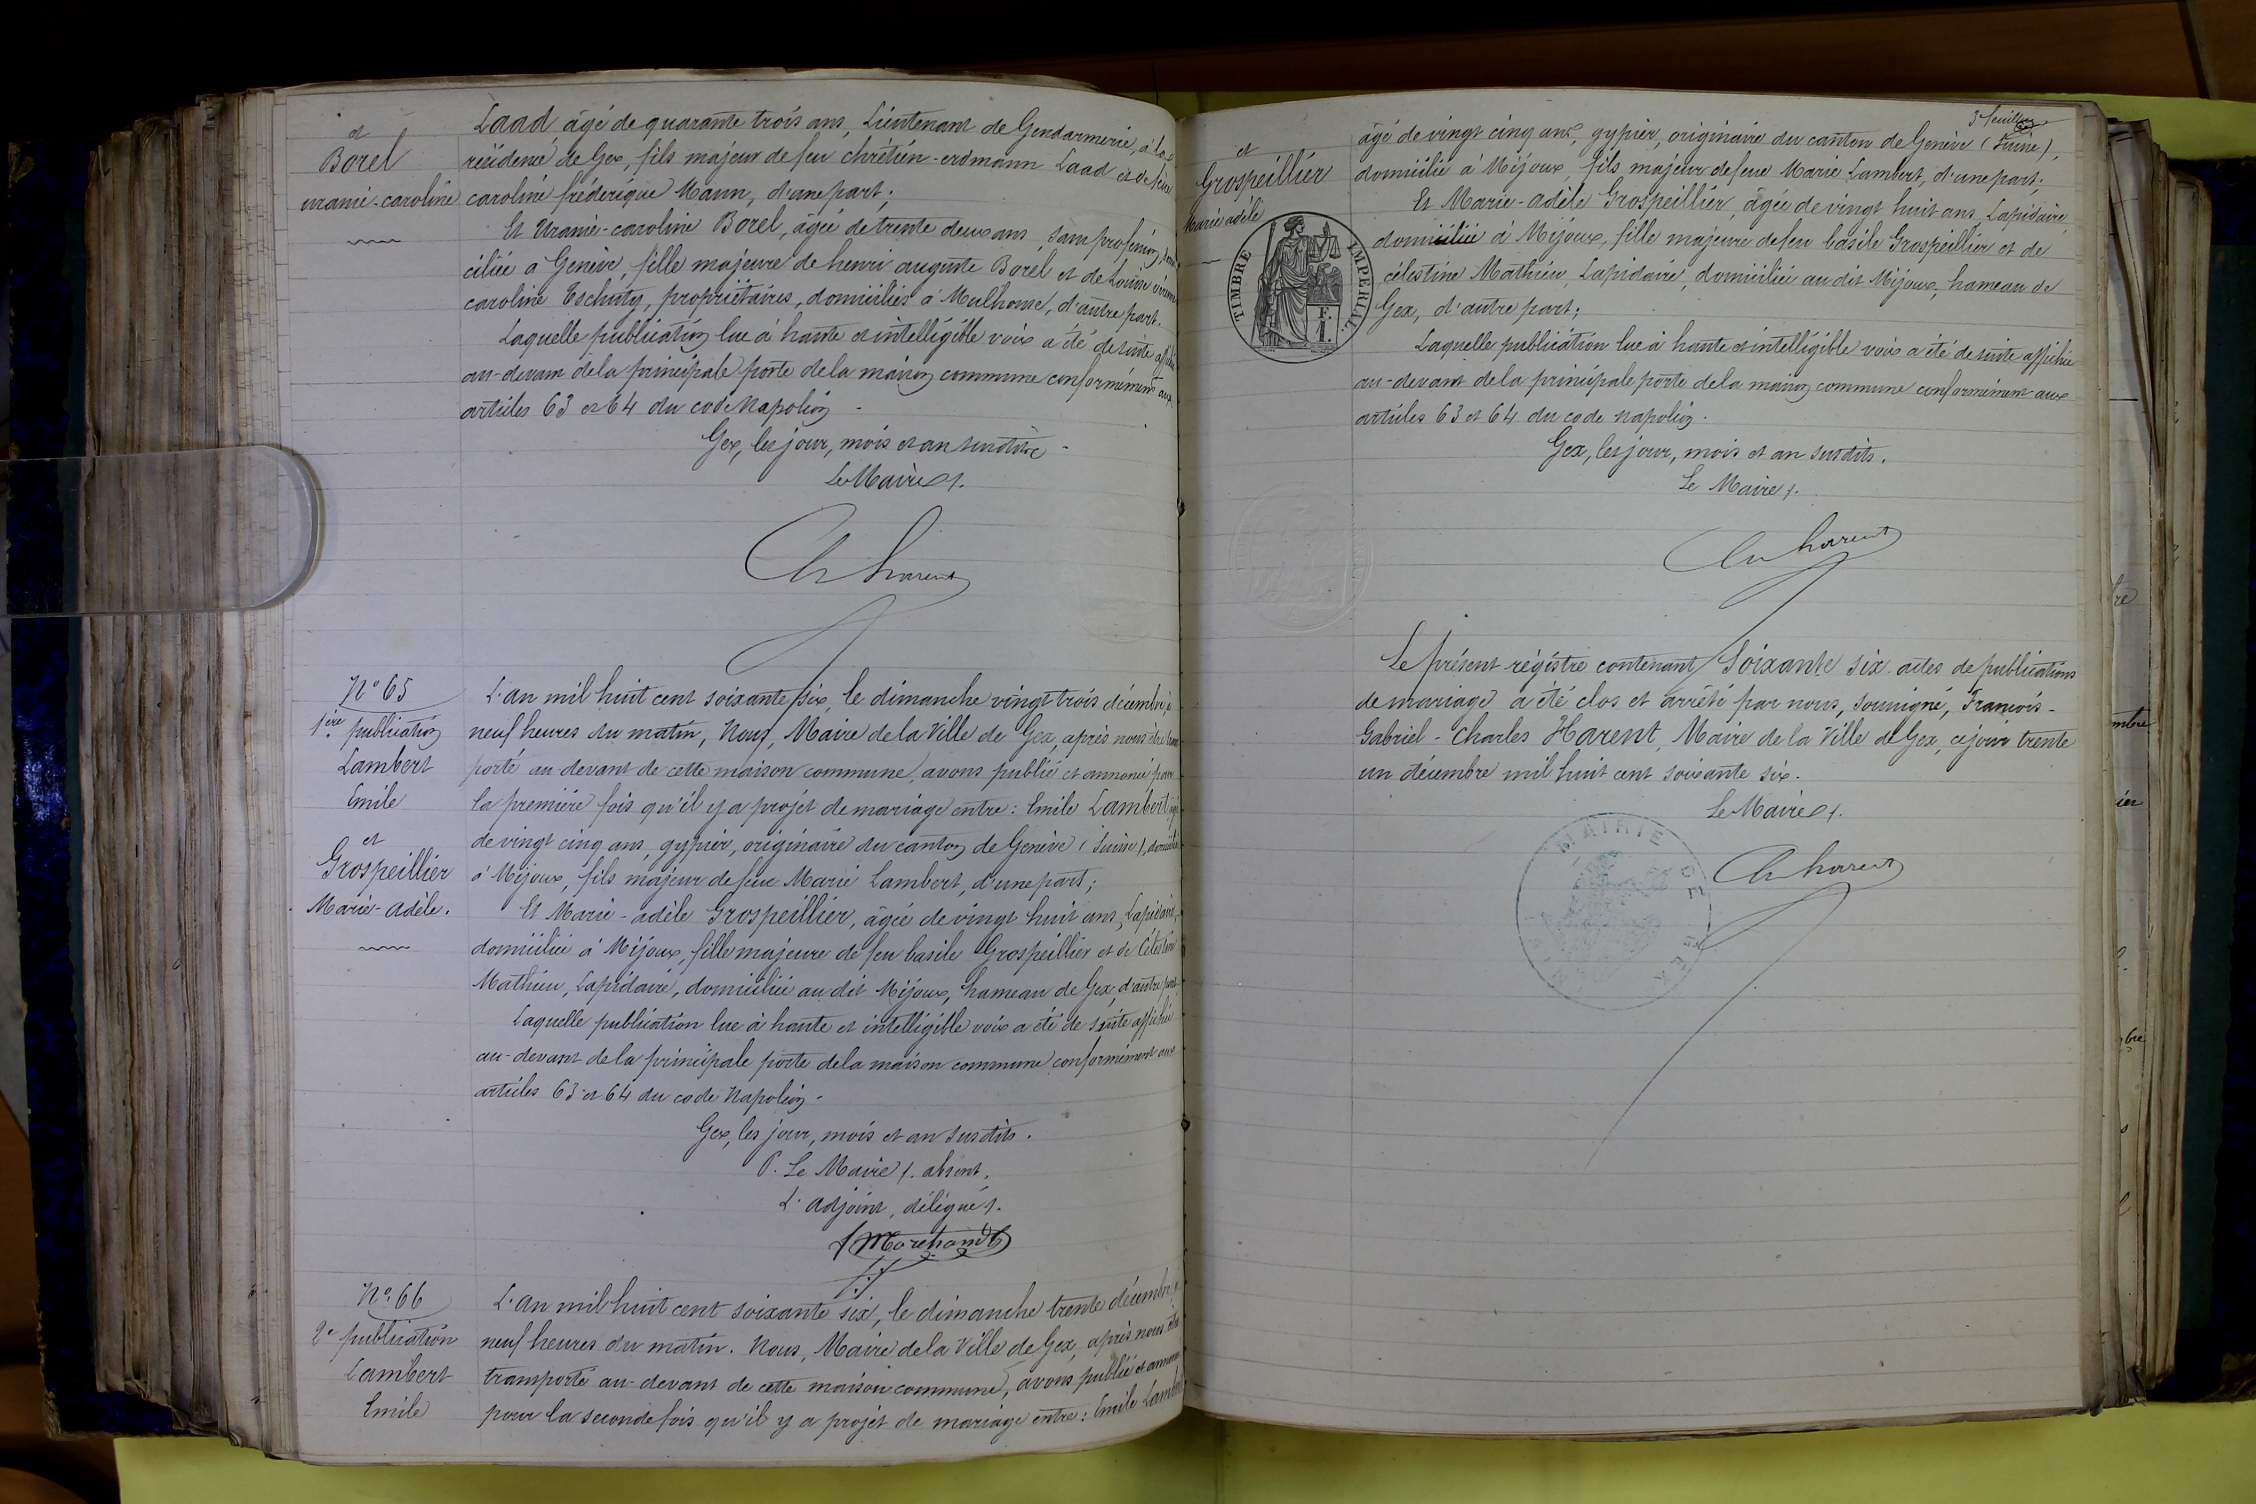 et
Borel
uranie-caroline
Laad âgé de quarante trois ans, Lieutenant de Gendarmerie, à la
résidence de Gex, fils majeur de feu chrétien-erdmann Laad et de feue
caroline fréderique Mann, d'une part;
Et Uranie-caroline Borel, âgée de trente deux ans, sans profession, domi
ciliée à Genève, fille majeure de henri auguste Borel et de Louise
caroline, propriétaires, domiciliés à Mulhouse, d'autre part.
Laquelle publication lue à haute et intelligible voix a été de suite affichée
au-devant de la principale porte de la maison commune conformément aux
articles 63 et 64 du code Napoléon -
Gex, les jour, mois et an susdits -
Le Maire.
Ch harent
N° 65
1ère publication
Lambert
Emile
et
Grospeillier
Marie-adèle.
L'an mil huit cent soixante six, le dimanche vingt trois décembre, à
neuf heures du matin, Nous, Maire de la Ville de Gex, après nous être trans
porté au devant de cette maison commune, avons publié et annoncé pour
la première fois qu'il y a projet de mariage entre: Emile Lambert, âgé
de vingt cinq ans, gypier, originaire du canton de Genève (Suisse), domicilié
à Mijoux, fils majeur de feue Marie Lambert, d'une part;
Et Marie-adèle Grospeillier, âgée de vingt huit ans, Lapidaire,
domiciliée à Mijoux, fille majeure de feu basile Grospeillier et de Célestine
Mathieu, Lapidaire, domiciliée au dit Mijoux, hameau de Gex, d'autre part.
Laquelle publication lue à haute et intelligible voix a été de suite affichée
au-devant de la principale porte de la maison commune conformément aux
articles 63 et 64 du code Napoléon -
Gex, les jour, mois et an susdits.
P. Le Maire absent,
L'adjoint, délégué.
Marchand
N° 66
2e publication
Lambert
Emile
L'an mil huit cent soixante six, le dimanche trente décembre, à
neuf heures du matin. Nous, Maire de la Ville de Gex, après nous être
transporté au-devant de cette maison commune, avons publié et annoncé
pour la seconde fois qu'il y a projet de mariage entre: Emile Lambert
3e feuillet
et
Grospeillier
Marie adèle
TIMBRE IMPÉRIAL
F.
1.
âgé de vingt cinq ans, gypier, originaire du canton de Genève (Suisse),
domicilié à Mijoux, fils majeur de feue Marie Lambert, d'une part;
Et Marie-adèle Grospeillier, âgée de vingt huit ans, Lapidaire,
domiciliée à Mijoux, fille majeure de feu basile Grospeillier et de
célestine Mathieu, Lapidaire, domiciliée au dit Mijoux, hameau de
Gex, d'autre part;
Laquelle publication lue à haute et intelligible voix a été de suite affichée
au-devant de la principale porte de la maison commune conformément aux
articles 63 et 64 du code napoléon.
Gex, les jour, mois et an susdits.
Le Maire.
Ch harent
Le présent régistre contenant Soixante six actes de publications
de mariage a été clos et arrêté par nous, soussigné, François-
Gabriel-Charles Harent, Maire de la Ville de Gex, ce jour trente
un décembre mil huit cent soixante six.
Le Maire.
MAIRIE DE GEX
Ch harent